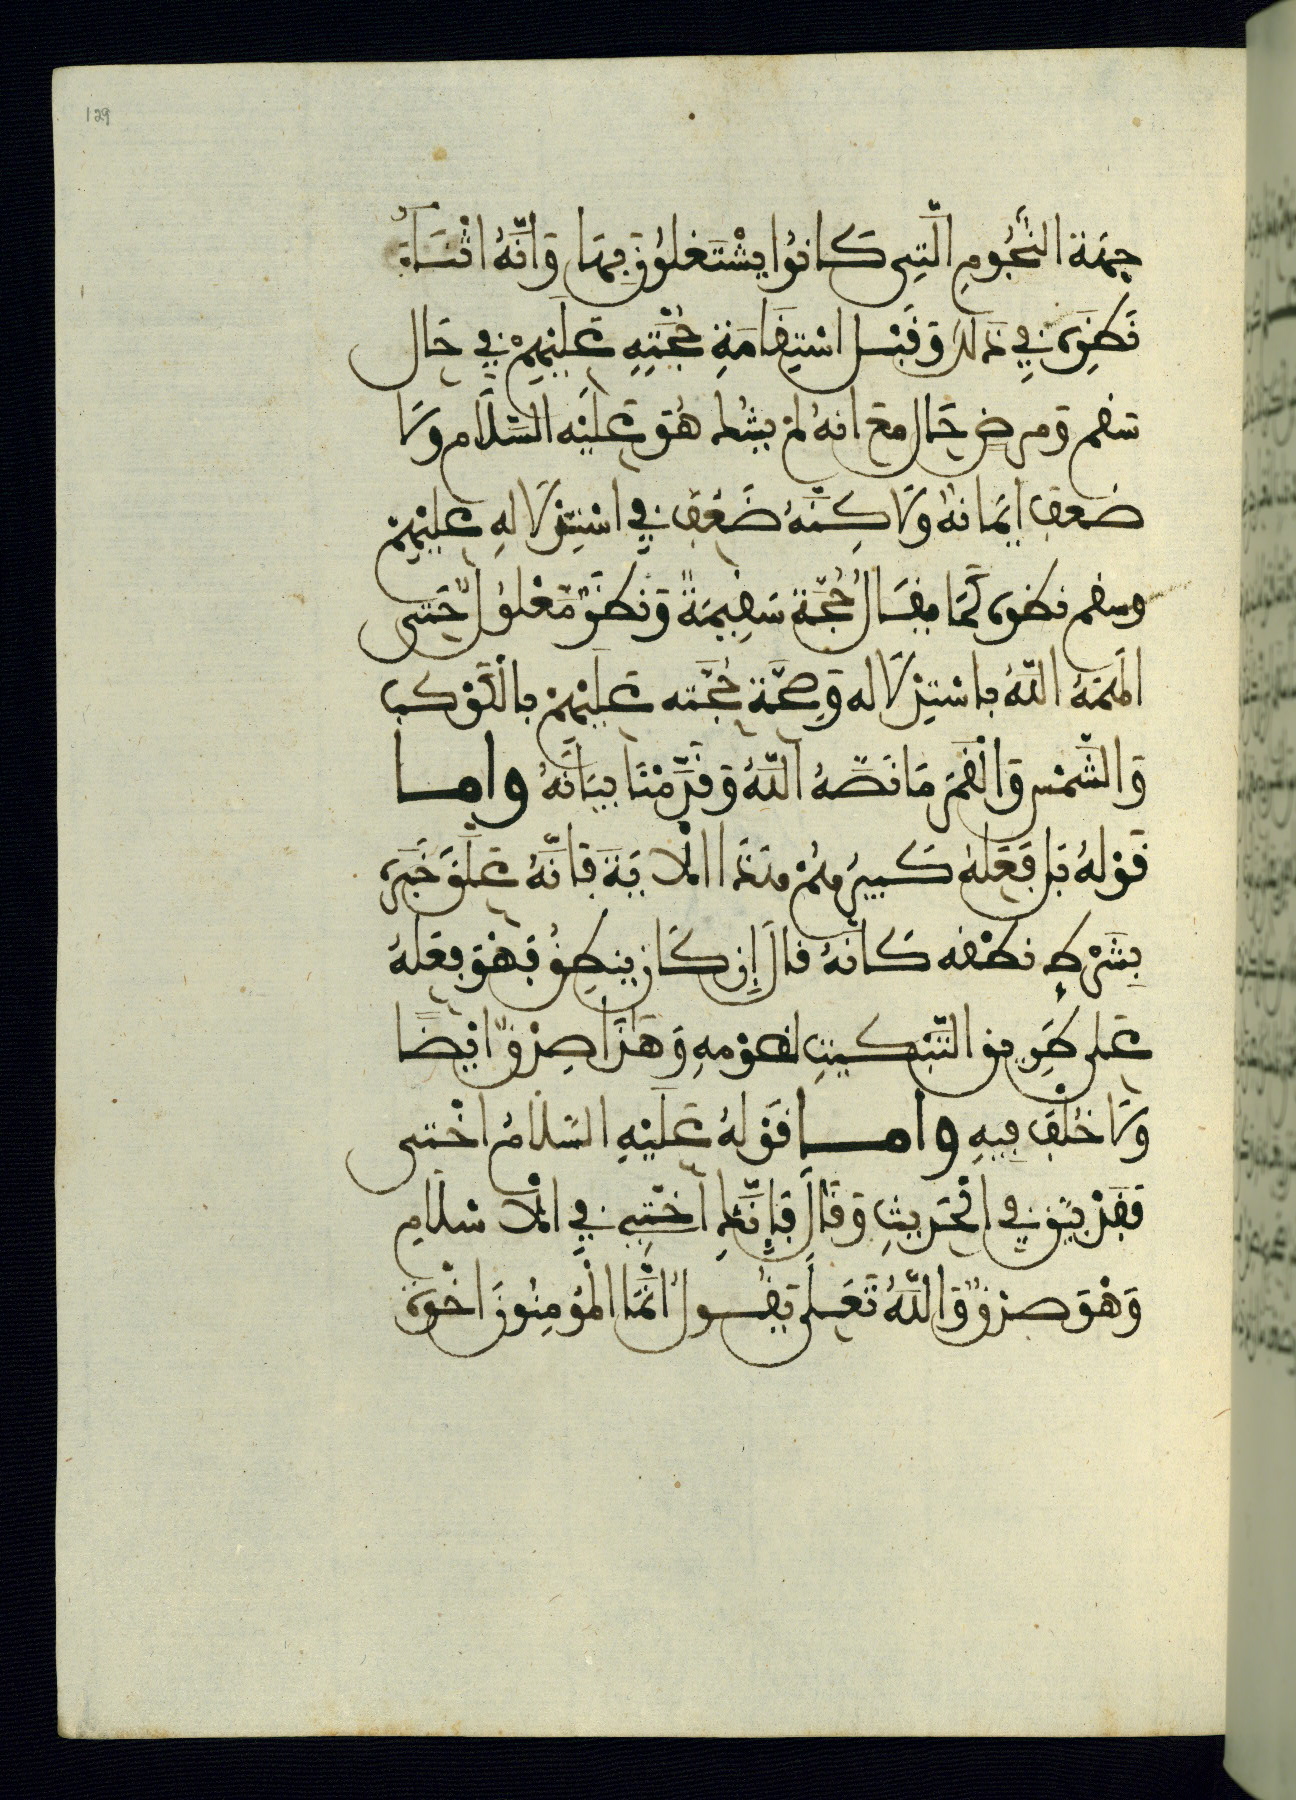 129
جِهَةِ النُّجُومِ الَّتِي كَانُوا يَشْتَغِلُونَ بِهَا وَأَنَّهُ اثْنَاءَ
نَظَرِهِ فِي ذَلِكَ وَقَبْلَ اسْتِقَامَةِ حُجَّتِهِ عَلَيْهِمْ فِي حَال
سَقم وَمرض حَال مَعَ انهُ لَمْ يشُك هُوَ عَلَيْهِ السَّلَام وَلَا
ضعف ايمَانهُ وَلَاكِنَّهُ ضَعُفَ فِي اسْتِدْلَالِهِ عَلَيْهِمْ
وسقم نظره كَمَا يقَالُ حُجَّة سَقِيمَةٌ وَنَظَرٌ مَعْلُول حَتَّى
الْهَمَهُ اللَّهُ بِاسْتِدْلَاله وَصِحَّة حُجَّته عَلَيْهِمْ بِالْكَوْكَب
وَالشَّمْس وَالْقَمَر مَا نَصَّهُ اللَّهُ وَقَدَّمْنَا بَيَانَهُ وامـا
قَوْلهُ بَل فَعَلَهُ كَبِيرُهُمْ هَذَا الْآيَةَ فَانَّهُ عَلَّقَ خَبَرَهُ
بِشَرْطِ نطْقه كَانَّهُ قَالَ إِن كَانَ يَنطِقُ فَهْوَ فِعْلُهُ
عَلَى طَرِيق التَّبْكِيتِ لقَوْمِهِ وَهَذَا صِدْقٌ ايْضًا
وَلَا خُلْفَ فِيهِ وامـا قَوْلهُ عَلَيْهِ السَّلَامُ اخْتِي
فَقَدْ بَيَّنَ فِي الْحَدِيثِ وَقَالَ فَإِنَّكِ اخْتِي فِي الْاسْلَامِ
وَهْوَ صِدْقٌ وَاللَّهُ تَعَلَى يَقُـولُ انَّمَا الْمُؤْمِنُونَ اخْوَةٌ